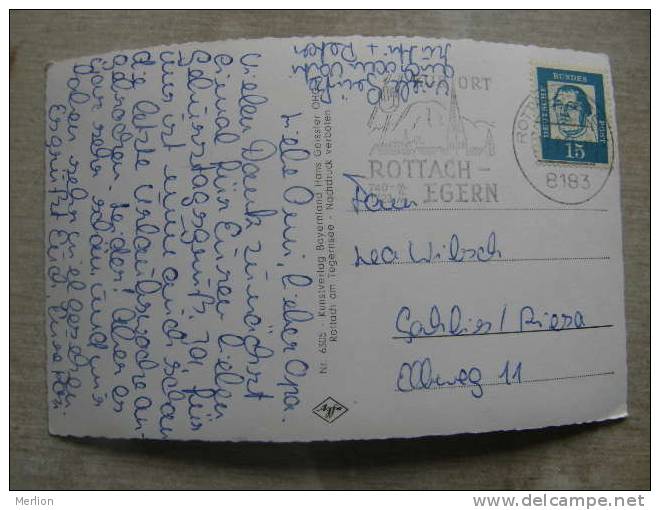 Liebe Omi, lieber Opa.
Vielen Dank zunächst
einmal für Euren lieben
Geburtstagsgruß. Ja, für
uns ist nun auch schon
die letzte Urlaubswoche an-
gebrochen. Leider! Aber es
war sehr schön und wir
haben sehr viel gesehen.
Es grüßt Euch, Eure
Nr. 6305 - Kunstverlag Bayernland Hans Geissler OHG
Rottach am Tegernsee - Nachdruck verboten
ORT
ROTTACH-
EGERN
8183
DEUTSCHE BUNDESPOST
15
Frau
Lea Wilsch
Gohlis / Riesa
Elbweg 11
Merlion
www.delcampe.net